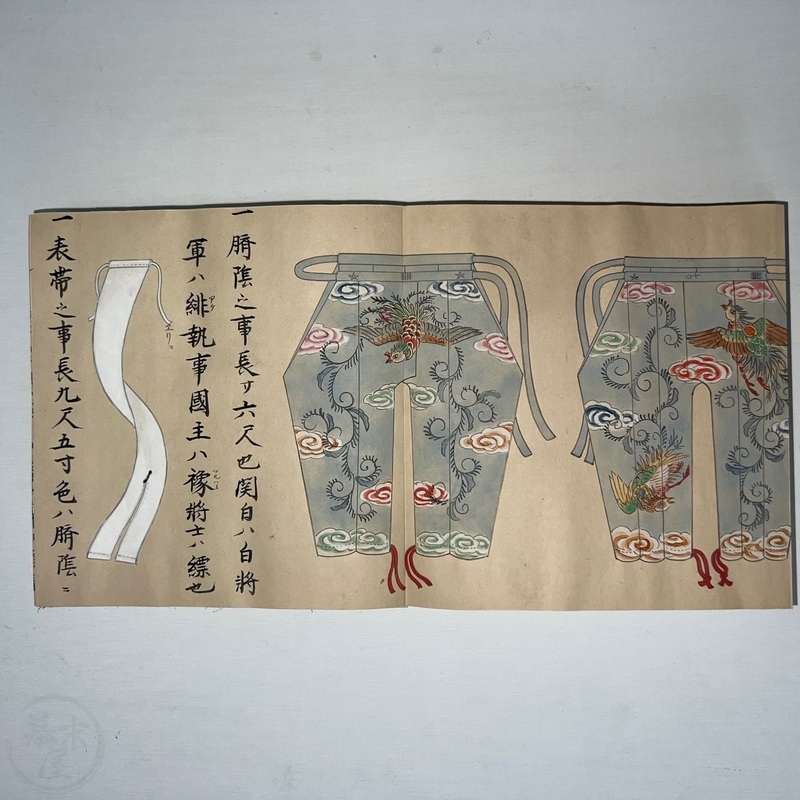 一臍陰之事長サ六尺也関白ハ白將
軍ハ緋執事國主ハ橡將士ハ縹也
アケ
一表帯之事長九尺五寸色ハ臍陰ニ